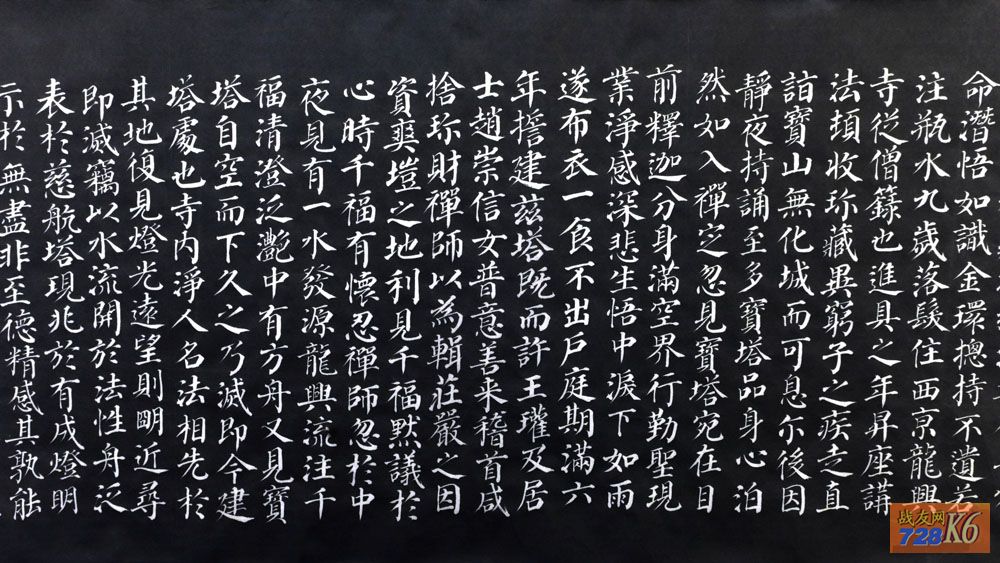 命潛悟如識金環揔持不遺若
注瓶水九歲落髮住西京龍興
寺從僧籙也進具之年昇座講
法頓收珎藏異窮子之疾走直
詣寶山無化城而可息尒後因
靜夜持誦至多寶塔品身心泊
然如入禪定忽見寶塔宛在目
前釋迦分身滿空界行勤聖現
業淨感深悲生悟中淚下如雨
遂布衣一食不出戶庭期滿六
年擔建兹塔既而許王瓘及居
士趙崇信女普意善来稽首咸
捨珎財禪師以為輯莊嚴之因
資爽塏之地利見千福默議於
心時千福有懷忍禪師忽於中
夜見有一水發源龍興流注千
福清澄泛灧中有方舟又見寶
塔自空而下久之乃滅即今建
塔處也寺內淨人名法相先於
其地復見燈光遠望則明近尋
即滅竊以水流開於法性舟泛
表於慈航塔現兆於有成燈明
示於無盡非至德精感其孰能
战友网
728K6